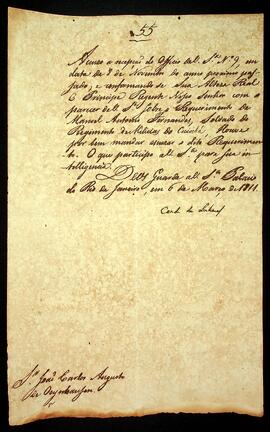 55
Accuso a recepção do Officio de V. S.ª N.º 9, em
data de 8 de Novembro do anno proximo pas-
sado; e conformando-se Sua Alteza Real
O Principe Regente Nosso Senhor com o
parecer de V. S.ª sobre o Requerimento de
Manoel Antonio Fernandes, Soldado do
Regimento de Milicias do Cuiabá, Houve
por bem mandar o dito Requerimen-
to. O que participo a V. S.ª para sua in-
telligencia.
Deos Guarde a V. S.ª Palacio
do Rio de Janeiro, em 6 de Março de 1811.
Conde de Linhares
S.r João Carlos Augusto
de Oeynhausen.